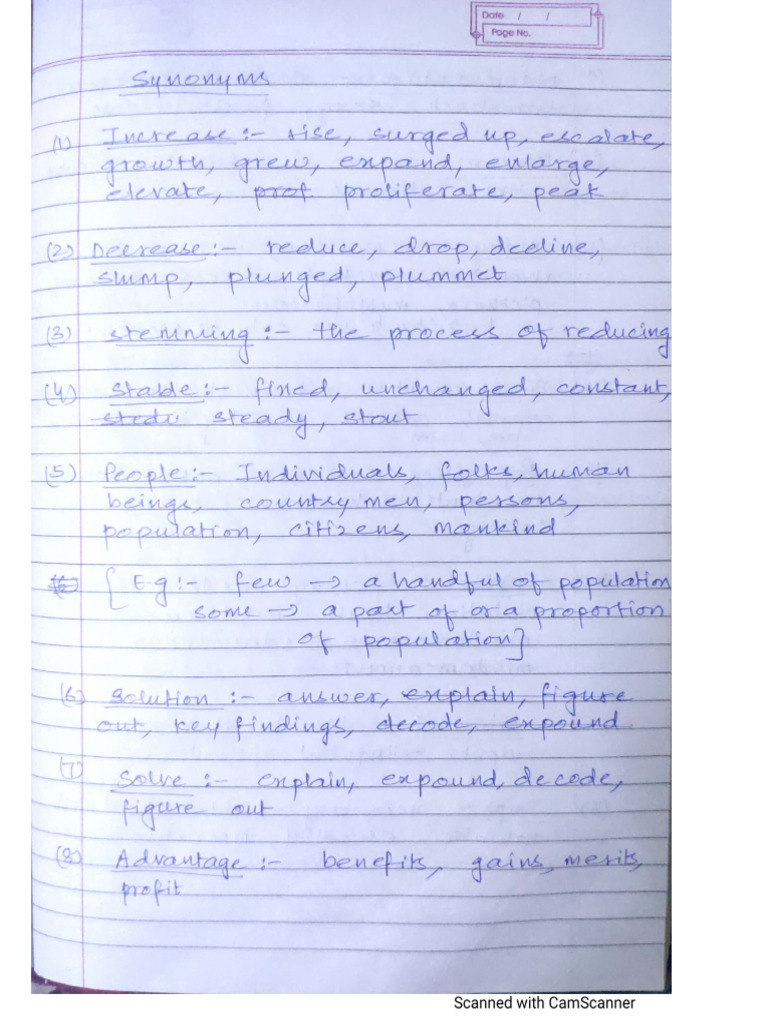 Date / /
Page No.
Synonyms
(1) Increase :- rise, surged up, escalate,
growth, grew, expand, enlarge,
elevate, prof proliferate, peak
(2) Decrease :- reduce, drop, decline,
slump, plunged, plummet
(3) stemming :- the process of reducing
(4) Stable :- fixed, unchanged, constant,
stedi steady, stout
(5) People :- Individuals, folks, human
beings, country men, persons,
population, citizens, mankind
(6) [E.g :- few → a handful of population
some → a part of or a proportion
of population]
(6) Solution :- answer, explain, figure
out, key findings, decode, expound
(7)
Solve :- explain, expound, decode,
figure out
(8) Advantage :- benefits, gains, merits,
profit
Scanned with CamScanner